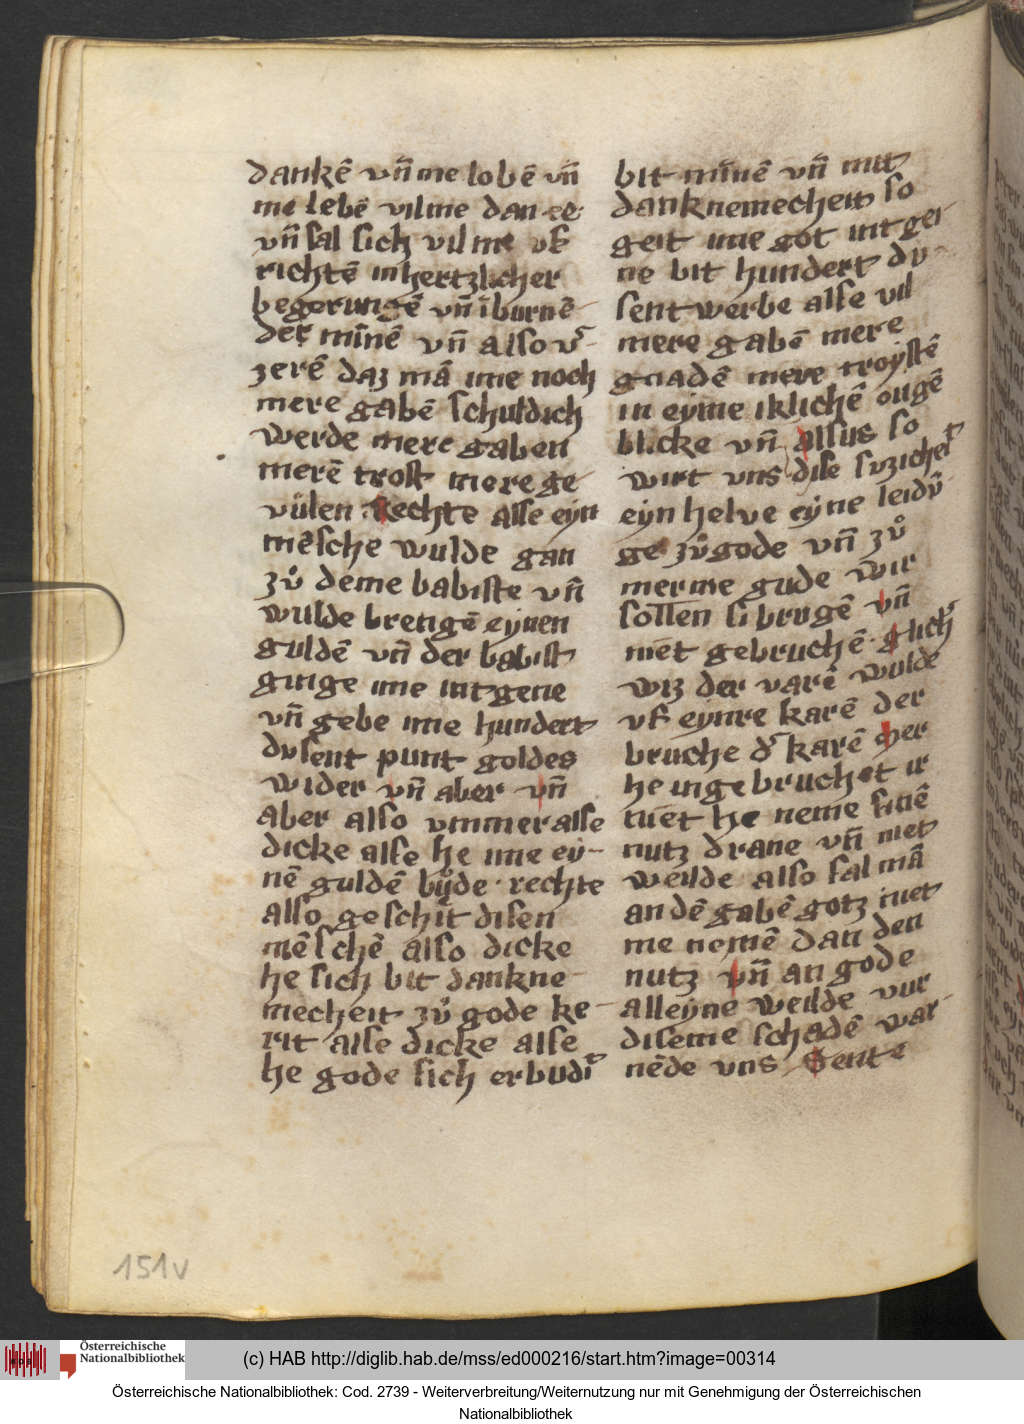 dankē vn̄ me lobē vn̄
me lebē vil me dan ee
vn̄ sal sich vil me vf
richtē in hertzlicher
begerungē vn̄ ī burnē
der mīnē vn̄ also v̓
zerē daz mā ime noch
mere gabē schuldich
werde mere gaben
merē trost mere ge
vůlen Rechte alse eyn
mēsche wulde gan
zů deme babiste vn̄
wulde brengē eynen
guldē vn̄ der babist
ginge ime intgene
vn̄ gebe ime hundert
dusent punt goldes
wider vn̄ aber vn̄
aber also vmmer alse
dicke alse he ime ey-
nē guldē bůde rechte
also geschit disen
mēschē also dicke
he sich bit dankne
mecheit zů gode ke-
rit alse dicke alse
he gode sich erbudit
bit minē vn̄ mit
danknemecheit so
geit ime got intgei
ne bit hundert du-
sent werbe alse vil
mere gabē mere
gnadē mere troystē
in eyme iklichē ougē
blicke vn̄ alsus so
wirt vns dise suzicheit
eyn helve eyne leidū
ge zůgode vn̄ zů
merme gude wir
sollen si brugē vn̄
niet gebruchē glich
wiz der varē wulde
vf eynre karē der
bruche d̓ karē Mer
he ingebruchet ir
niet he neme sinē
nutz drane vn̄ niet
weilde also sal mā
an dē gabē gotz niet
me nemē dan den
nutz vn̄ an gode
alleyne weilde vur
diseme schadē war-
nēde vns Sente
151v
Österreichische
Nationalbibliothek
(c) HAB http://diglib.hab.de/mss/ed000216/start.htm?image=00314
Österreichische Nationalbibliothek: Cod. 2739 - Weiterverbreitung/Weiternutzung nur mit Genehmigung der Österreichischen
Nationalbibliothek